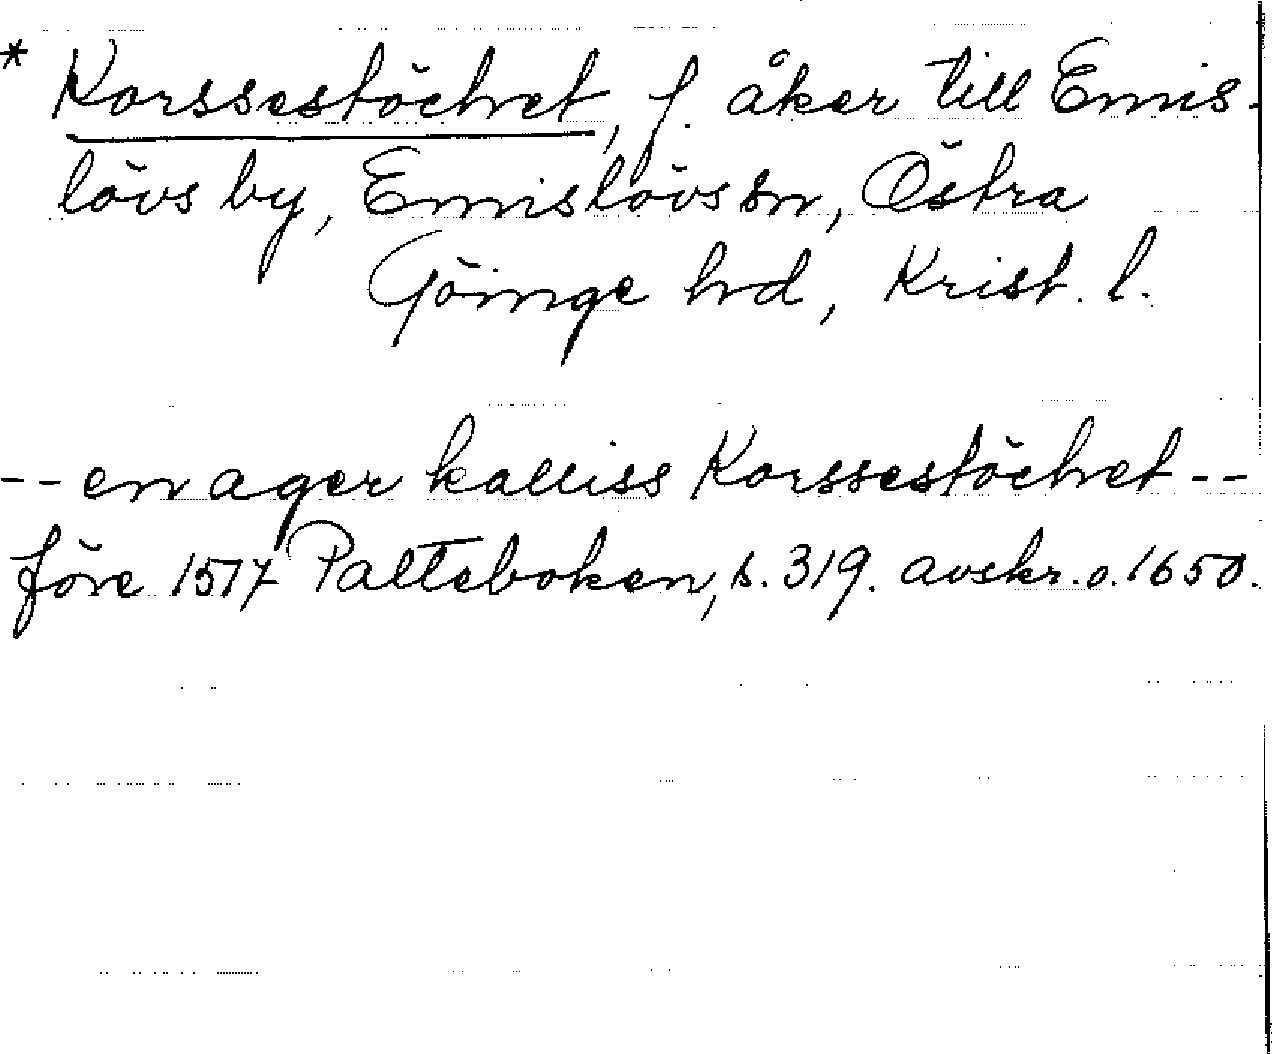 * Korssestöchet, f. åker till Emis-
lövs by, Emislövs sn, Östra
Göinge hd, Krist. l.
-- en ager kalliss Korssestöchet --
före 1517 Palteboken, s. 319. avskr. o. 1650.